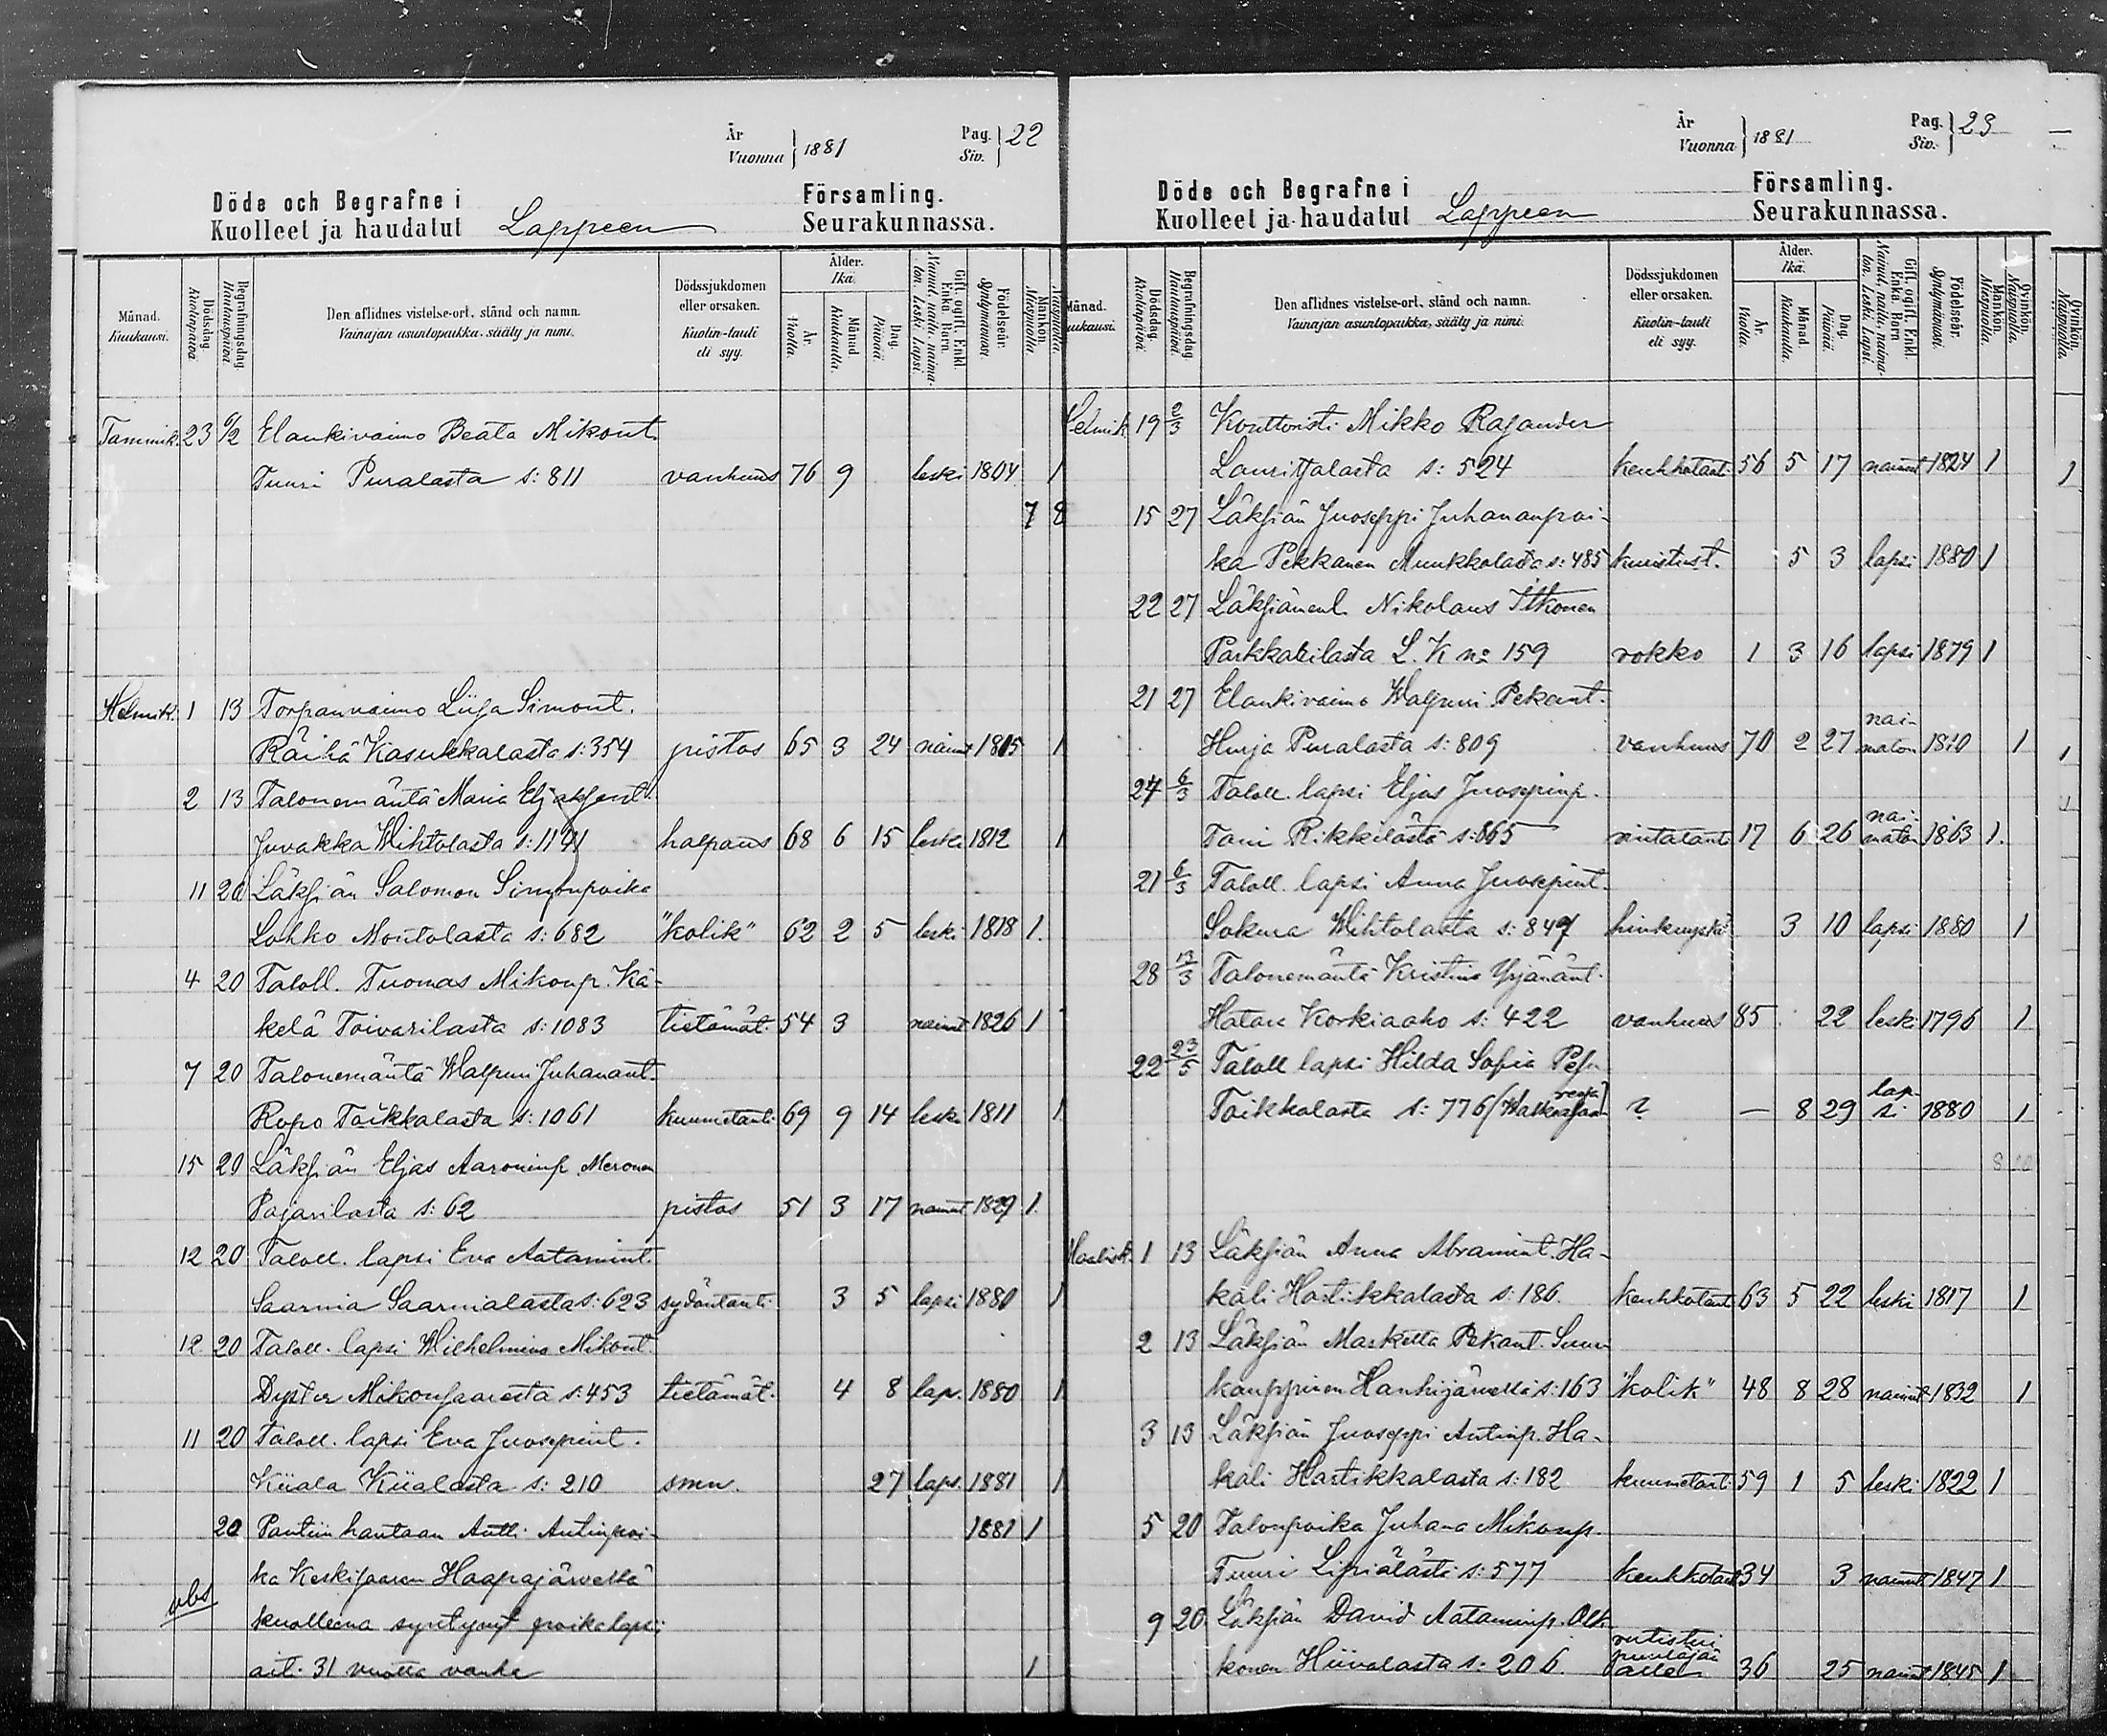 År
Vuonna } 1881
Pag.
Siv. } 22
Döde och Begrafne i Församling.
Kuolleet ja haudatut Lappeen Seurakunnassa.
Månad. Kuukausi.
Dödsdag. Kuolinpäivä.
Begrafningsdag Hautauspäivä.
Den aflidnes vistelse-ort, stånd och namn.
Vainajan asuntopaikka, sääty ja nimi.
Dödssjukdomen eller orsaken.
Kuolin-tauti eli syy.
Ålder. Ikä.
År. Vuotta.
Månad. Kuukautta.
Dag. Päivää.
Gift, ogift, Enkl. Enka, Barn.
Nainut, naitu, naimaton, Leski, Lapsi.
Födelseår. Syntymävuosi.
Mankön. Miespuolta.
Tammik. 23 6/2 Elankivaimo Beata Mikont.
Tuuri Puralasta s: 811 vanhuus 76 9 leski 1804 1
7 8
Helmik. 1 13 Torpanvaimo Liija Simont.
Räihä Kasukkalasta s: 354 pistos 65 3 24 nainut 1815 1
2 13 Talonemäntä Maria Eljaksent.
Juvakka Wihtolasta s: 1141 halpaus 68 6 15 leski 1812 1
11 20 Läksiän Salomon Simonpoika
Lohko Montolasta s: 682 "kolik" 62 2 5 leski 1818 1.
4 20 Taloll. Tuomas Mikonp. Kä-
kelä Toivarilasta s: 1083 tietämät. 54 3 nainut 1826 1
7 20 Talonemäntä Walpuri Juhanant.
Ropo Toikkalasta s: 1061 kuumetauti 69 9 14 leski 1811 1
15 20 Läksiän Eljas Aaroninp. Meronen
Pajarilasta s: 62 pistos 51 3 17 nainut 1829 1.
12 20 Taloll. lapsi Eva Aatamint.
Saarnia Saarnialasta s: 623 sydäntauti 3 5 lapsi 1880 1
12 20 Taloll. lapsi Wilhelmina Mikont.
Dyster Mikonsaaresta s: 453 tietämät. 4 8 laps. 1880 1
11 20 Taloll. lapsi Eva Juosepint.
Kiiala Kiialasta s: 210 smn. 27 laps. 1881 1
20 Pantiin hautaan Antti Antinpoi- 1881 1
ka Keskisaaren Haapajärvellä
obs kuolleena syntynyt poikalapsi;
äit. 31 vuotta vanha 1
År
Vuonna } 1881
Pag.
Siv. } 23
Döde och Begrafne i Församling.
Kuolleet ja haudatut Lappeen Seurakunnassa.
Månad. Kuukausi.
Dödsdag. Kuolinpäivä.
Begrafningsdag Hautauspäivä.
Den aflidnes vistelse-ort, stånd och namn.
Vainajan asuntopaikka, sääty ja nimi.
Dödssjukdomen eller orsaken.
Kuolin-tauti eli syy.
Ålder. Ikä.
År. Vuotta.
Månad. Kuukautta.
Dag. Päivää.
Gift, ogift, Enkl. Enka, Barn
Nainut, naitu, naimaton, Leski, Lapsi.
Födelseår. Syntymävuosi.
Mankön. Miespuolta.
Qvinkön. Naispuolta.
Helmik. 19 2/3 Konttoristi Mikko Rajander
Lauritsalasta s: 524 keuhkotauti 56 5 17 nainut 1824 1
15 27 Läksiän Juoseppi Juhananpoi-
ka Pekkanen Muukkolasta s: 485 kuristust. 5 3 lapsi 1880 1
22 27 Läksiänent. Nikolaus Itkonen
Parkkarilasta L. K no 159 rokko 1 3 16 lapsi 1879 1
21 27 Elankivaimo Walpuri Pekant.
Hurja Puralasta s: 809 vanhuus 70 2 27 nai-maton 1810 1
24 6/3 Taloll. lapsi Eljas Juosepinp.
Tani Rikkilästä s: 865 rintataut. 17 6 26 nai-maton 1863 1.
21 6/3 Taloll. lapsi Anna Juosepint.
Sokura Wihtolasta s: 847 hinkuyskä 3 10 lapsi 1880 1
28 13/3 Talonemäntä Kristina Yrjänänt.
Hatara Korkiaaho s: 422 vanhuus 85 22 leski 1796 1
22 23/5 Taloll lapsi Hilda Sofia
Toikkalasta s: 776 ? — 8 29 lap-si 1880 1
8 10
Maalisk. 1 13 Läksiän Anna Abramint. Ha-
kali Hartikkalasta s: 186. keuhkotaut. 63 5 22 leski 1817 1
2 13 Läksiän Marketta Pekant. Suur-
kauppinen Hanhijärvellä s: 163 "kolik" 48 8 28 nainut 1832 1
3 13 Läksiän Juoseppi Antinp. Ha-
kali Hartikkalasta s: 182 kuumetaut. 59 1 5 leski 1822 1
5 20 Talonpoika Juhana Mikonp.
Tuuri Lipiälästä s: 577 keuhkotaut 34 3 nainut 1847 1
9 20. Läksiän David Aataminp. Olk-
konen Hiivalasta s: 206. 36 25 nainut 1845 1